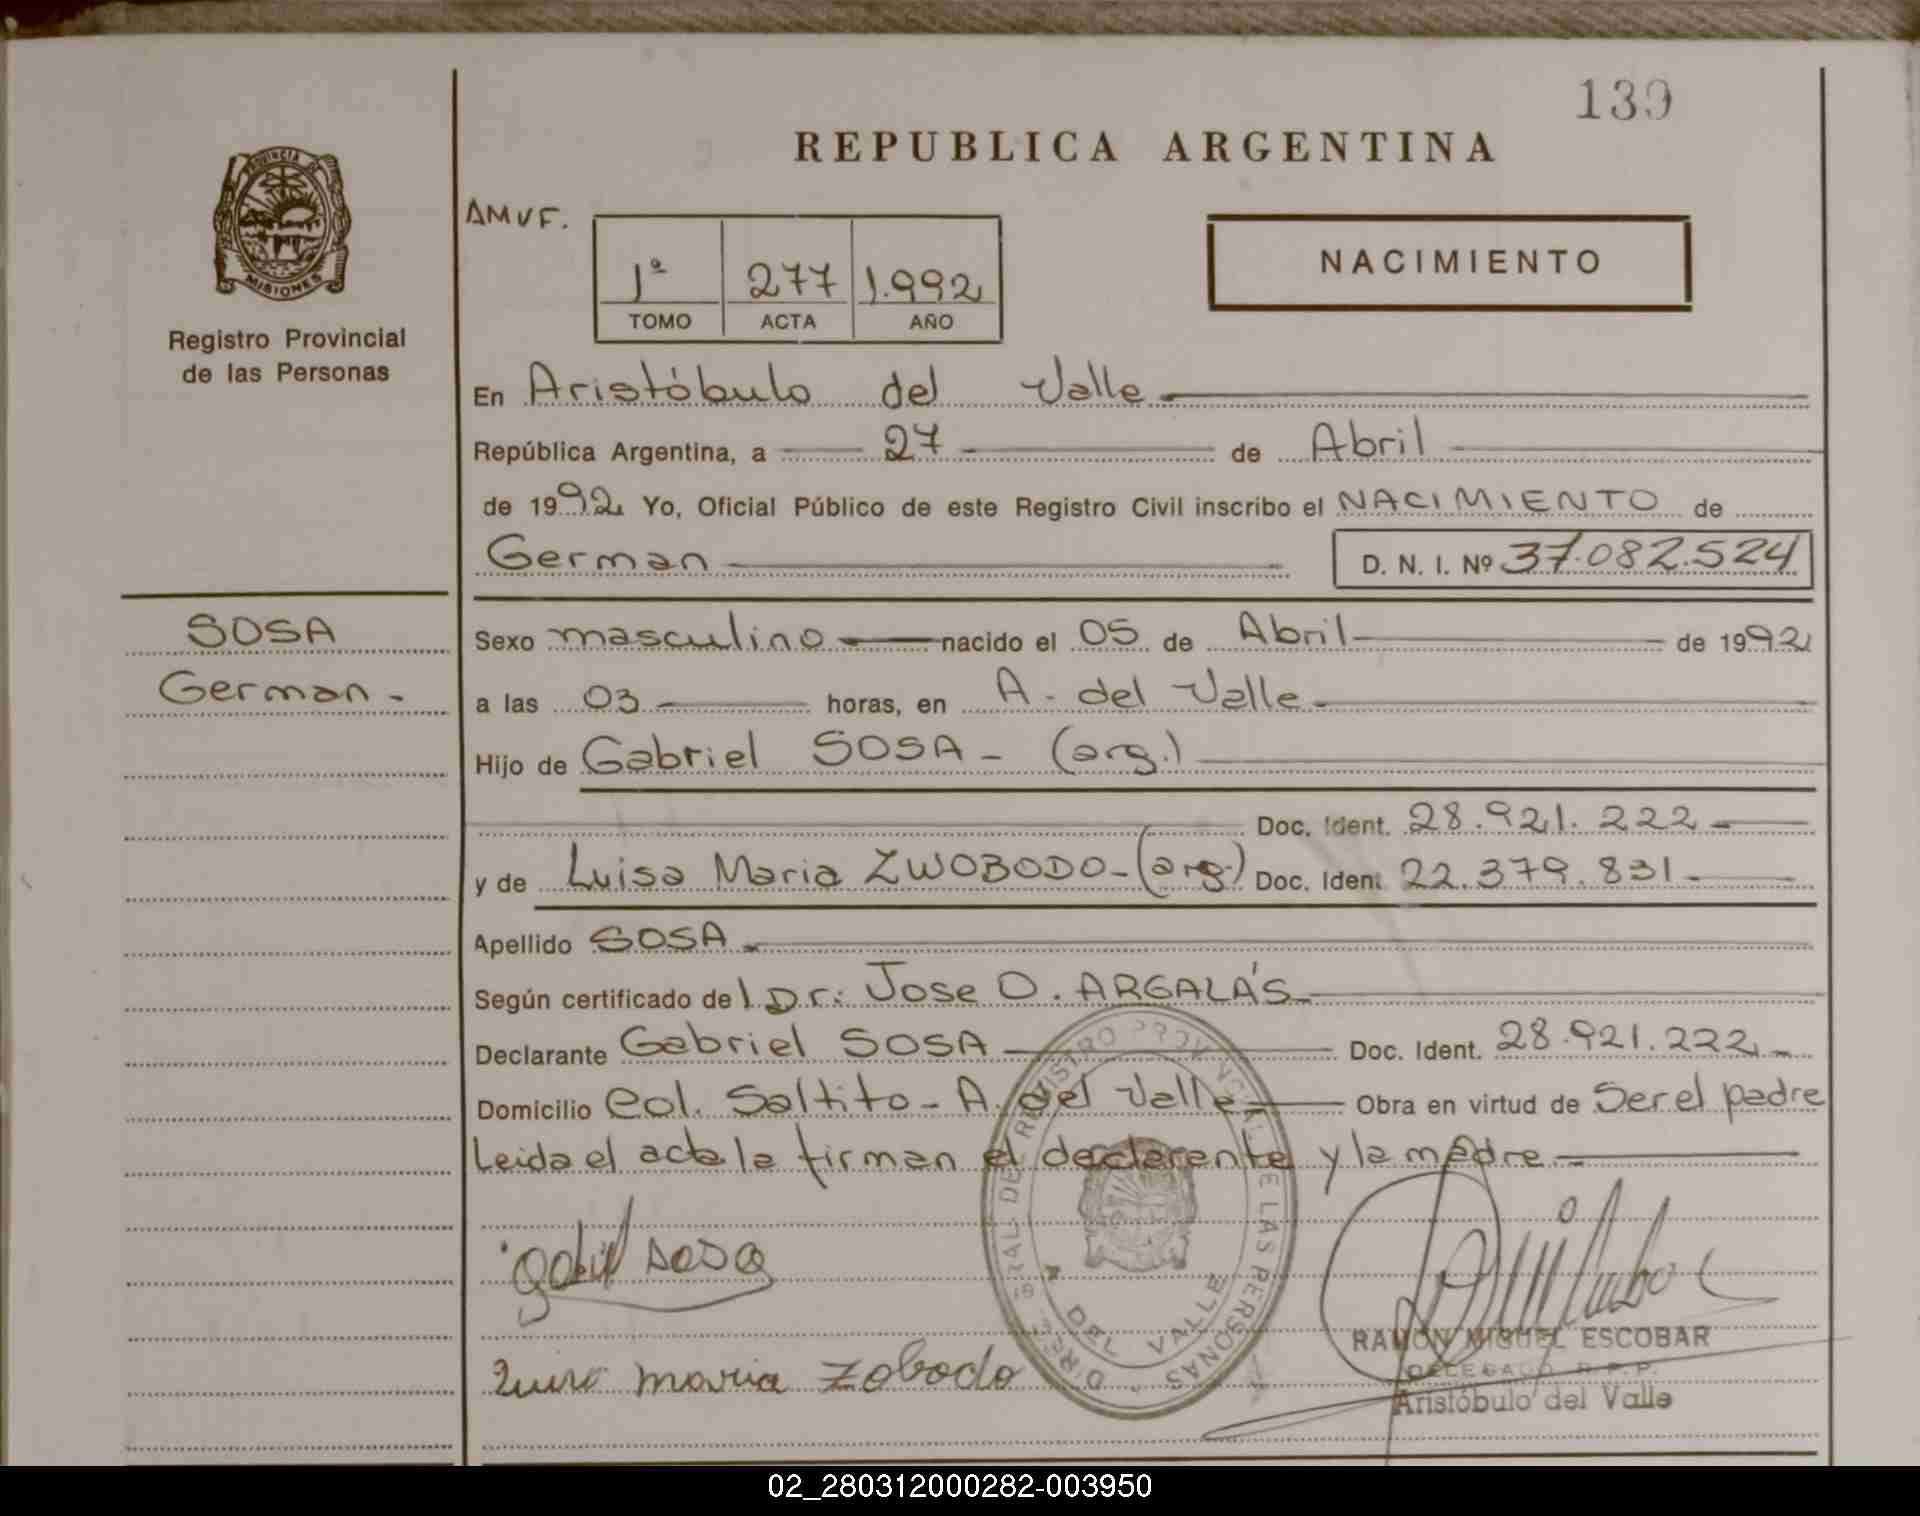 139
REPUBLICA ARGENTINA
PROVINCIA DE
MISIONES
Registro Provincial
de las Personas
AMVF.
1ª 277 1.992
TOMO ACTA AÑO
NACIMIENTO
En Aristóbulo del Valle
República Argentina, a 27 de Abril
de 1992 Yo, Oficial Público de este Registro Civil inscribo el NACIMIENTO de
German D. N. I. Nº 37.082.524
SOSA
German -
Sexo masculino nacido el 05 de Abril de 1992
a las 03 horas, en A. del Valle
Hijo de Gabriel SOSA - (arg.)
Doc. Ident. 28.921.222
y de Luisa Maria ZWOBODO - (arg.) Doc. Ident. 22.379.831
Apellido SOSA
Según certificado del Dr: Jose O. ARGALÁS
Declarante Gabriel SOSA Doc. Ident. 28.921.222
Domicilio Col. Saltito - A. del Valle Obra en virtud de Ser el padre
Leida el acta la firman el declarante y la madre
REGISTRO PROVINCIAL DE LAS PERSONAS
DEL VALLE
gabril sosa
maria zobodo
RAMON MIGUEL ESCOBAR
DELEGADO R.P.P.
Aristóbulo del Valle
02_280312000282-003950